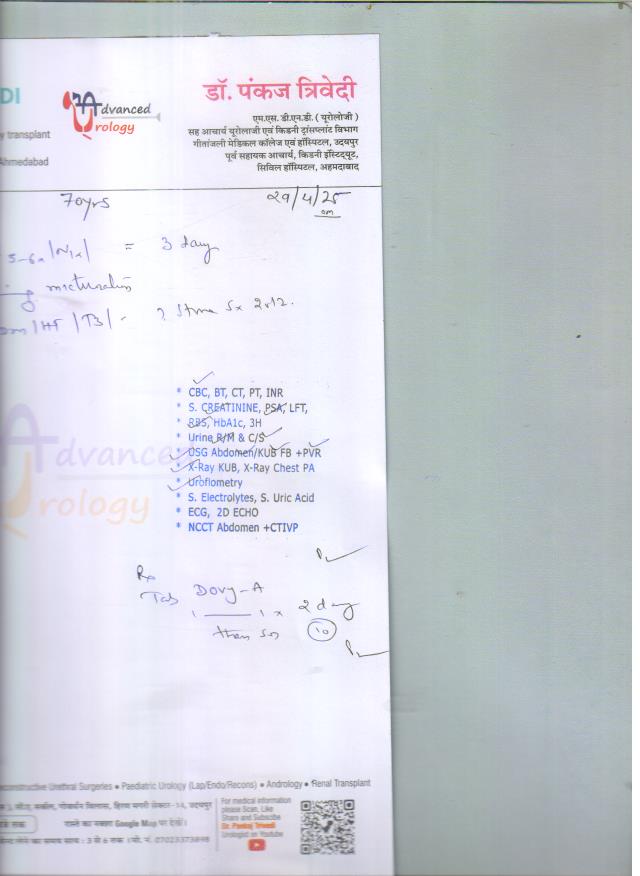 DI
Advanced
Urology
डॉ. पंकज त्रिवेदी
एम.एस. डी.एन.बी. ( यूरोलोजी )
y transplant
सह आचार्य यूरोलाजी एवं किडनी ट्रांसप्लांट विभाग
गीतांजली मेडिकल कॉलेज एवं हॉस्पिटल, उदयपुर
Ahmedabad
पूर्व सहायक आचार्य, किडनी इंस्टिट्यूट,
सिविल हॉस्पिटल, अहमदाबाद
70yrs
29/4/25
= 3 day
micturation
? Stone Sx 2012.
* CBC, BT, CT, PT, INR
* S. CREATININE, PSA, LFT,
* RBS, HbA1c, 3H
* Urine R/M & C/S
* USG Abdomen/KUB FB +PVR
* X-Ray KUB, X-Ray Chest PA
* Uroflometry
* S. Electrolytes, S. Uric Acid
* ECG, 2D ECHO
* NCCT Abdomen +CTIVP
dvanced
rology
Rx
Tab Dovy-A
1 — 1 x 2 day
then
10
econstructive Urethral Surgeries • Paediatric Urology (Lap/Endo/Recons) • Andrology • Renal Transplant
हिरण मगरी सेक्टर-14, उदयपुर
रास्ते का नक्शा Google Map पर देखें।
समय सायं : 3 से 6 तक
For medical information
please Scan, Like
Share and Subscribe
Dr. Pankaj Trivedi
Urologist on Youtube